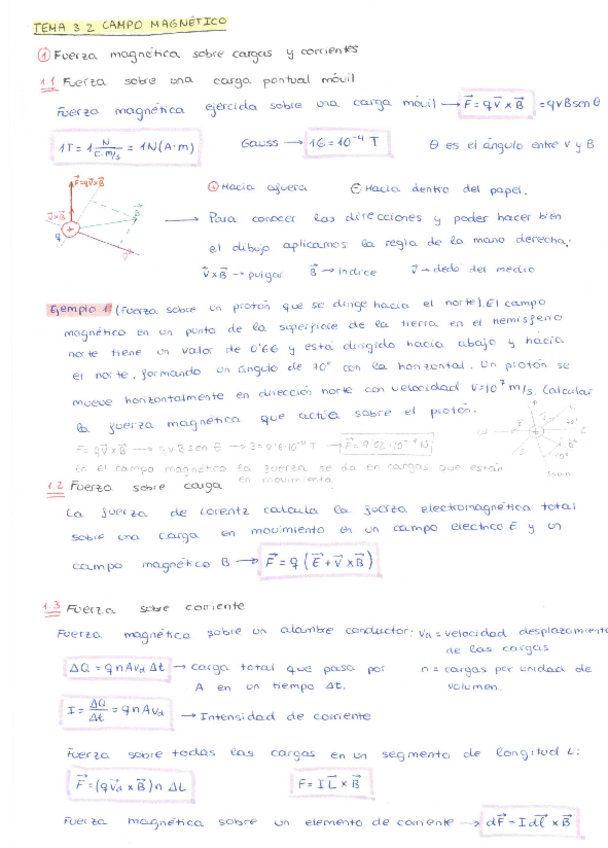 TEMA 3.2 CAMPO MAGNÉTICO
① Fuerza magnética sobre cargas y corrientes
1.1 Fuerza sobre una carga pontual móvil
Fuerza magnética ejercida sobre una carga móvil → F⃗ = q v⃗ x B⃗ = qvBsen θ
1T = 1 N/(C·m/s) = 1N(A·m) Gauss → 1G = 10⁻⁴ T θ es el ángulo entre v y B
F⃗=qv⃗xB⃗
v⃗xB⃗
B⃗
q
v⃗
⊕ Hacia afuera ⊖ Hacia dentro del papel.
→ Para conocer las direcciones y poder hacer bien
el dibujo aplicamos la regla de la mano derecha:
v⃗xB⃗ → pulgar B⃗ → índice v⃗ → dedo del medio
Ejemplo 1 (Fuerza sobre un protón que se dirige hacia el norte). El campo
magnético en un punto de la superficie de la tierra en el hemisferio
norte tiene un valor de 0'6G y está dirigido hacia abajo y hacia
el norte, formando un ángulo de 70° con la horizontal. Un protón se
mueve horizontalmente en dirección norte con velocidad v=10⁷ m/s. Calcular
la fuerza magnética que actúa sobre el protón.
En el campo magnético la fuerza se da en cargas que están
en movimiento.
1.2 Fuerza sobre carga
La fuerza de Lorentz calcula la fuerza electromagnética total
sobre una carga en movimiento en un campo electrico E y un
campo magnético B → F⃗ = q (E⃗ + v⃗ x B⃗)
1.3 Fuerza sobre corriente
Fuerza magnética sobre un alambre conductor: Vd = velocidad desplazamiento
de las cargas
ΔQ = q n A vd Δt → carga total que pasa por n = cargas por unidad de
A en un tiempo Δt. volumen.
I = ΔQ/Δt = q n A vd → Intensidad de corriente
Fuerza sobre todas las cargas en un segmento de longitud L:
F⃗ = (q v⃗d x B⃗) n ΔL F = I L⃗ x B⃗
Fuerza magnética sobre un elemento de corriente → dF⃗ = I dl⃗ x B⃗